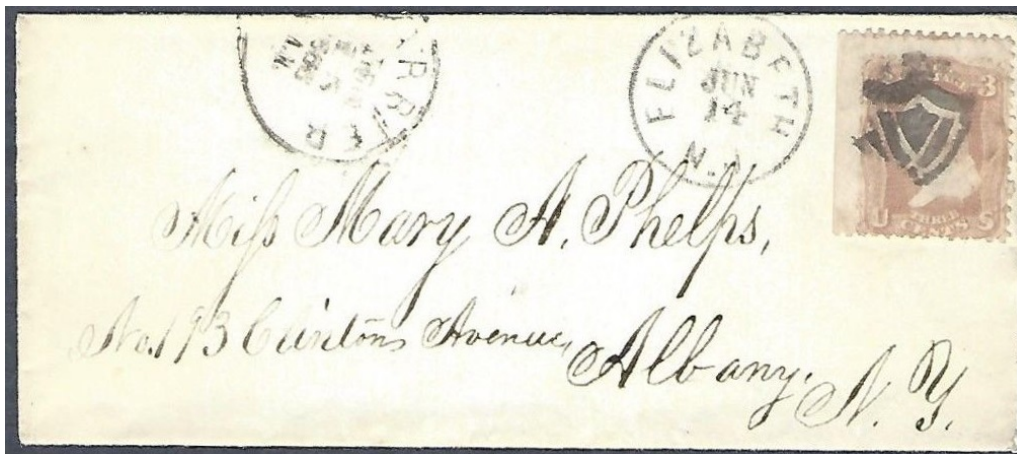 CARRIER
ELIZABETH
JUN
14
N.J.
3
U THREE CENTS S
Miss Mary A. Phelps,
No. 193 Clintons Avenue,
Albany,
N. Y.